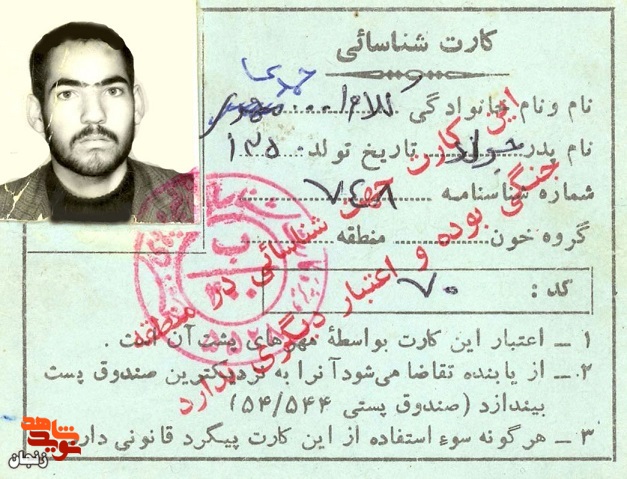 کارت شناسائی
نام ونام خانوادگی غلامرضا
نام پدر جواد تاریخ تولد ۱۳۵۰
شماره شناسنامه ۷۴۸
گروه خون منطقه
کد : ۷۰
این کارت جهت شناسائی در منطقه
جنگی بوده و اعتبار دیگری ندارد
۱ – اعتبار این کارت بواسطهٔ مهرهای پشت آن است .
۲– از یابنده تقاضا می‌شود آنرا به نزدیکترین صندوق پست
بیندازد (صندوق پستی ۵۴/۵۴۴)
۳ – هرگونه سوء استفاده از این کارت پیگرد قانونی دارد
نوید شاهد
زنجان